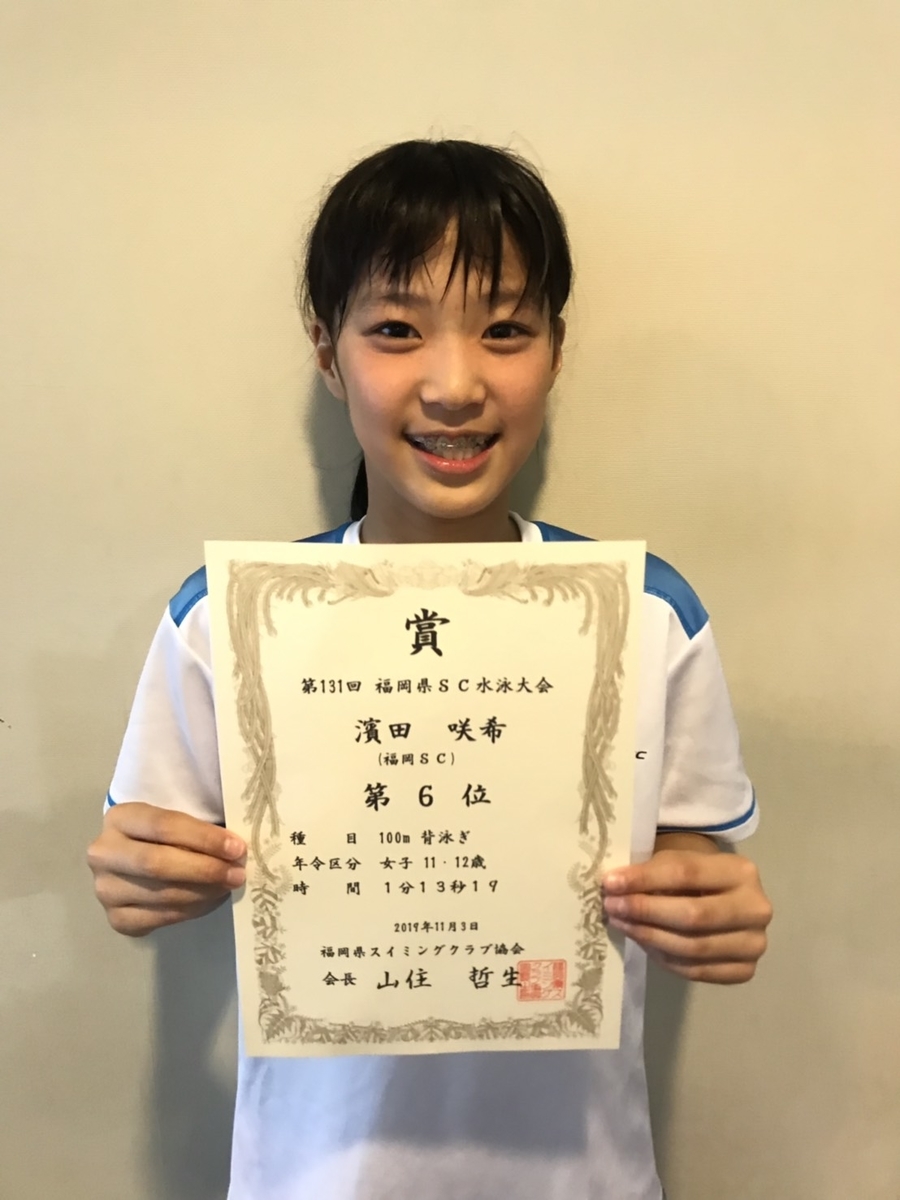 賞
第131回 福岡県SC水泳大会
濱田 咲希
(福岡SC)
第 6 位
種 目 100m 背泳ぎ
年令区分 女子 11・12歳
時 間 1分13秒19
2019年11月3日
福岡県スイミングクラブ協会
会長 山住 哲生
C